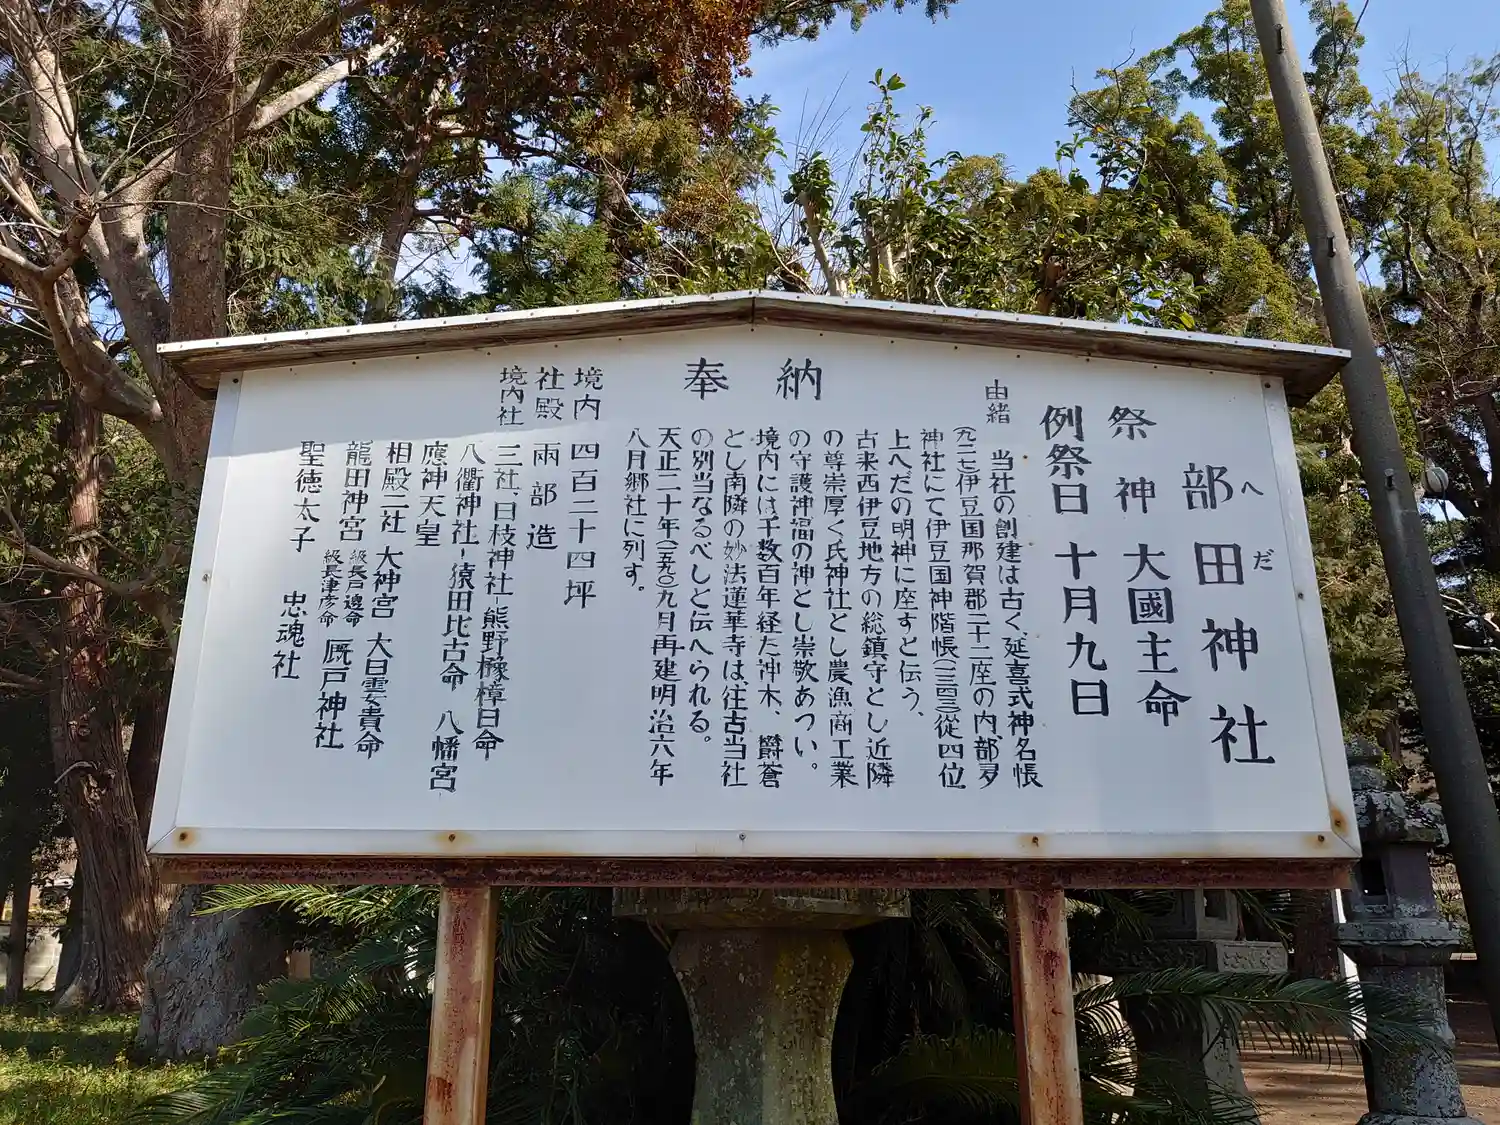 奉納
部田神社
へだ
祭神 大國主命
例祭日 十月九日
由緒
当社の創建は古く、延喜式神名帳
(九二七)伊豆国那賀郡二十二座の内、部多
神社にて伊豆国神階帳(一三四三)從四位
上へだの明神に座すと伝う、
古来西伊豆地方の総鎮守とし近隣
の尊崇厚く氏神社とし農漁商工業
の守護神福の神とし崇敬あつい。
境内には千数百年経た神木、欝蒼
とし南隣の妙法蓮華寺は、往古当社
の別当なるべしと伝へられる。
天正二十年(一五九〇)九月再建明治六年
八月郷社に列す。
境内 四百二十四坪
社殿 兩部造
境内社 三社、日枝神社-熊野櫲樟日命
八衢神社-猿田比古命 八幡宮
應神天皇
相殿二社 大神宮 大日孁貴命
龍田神宮 級長戸邊命 級長津彦命 厩戸神社
聖徳太子 忠魂社